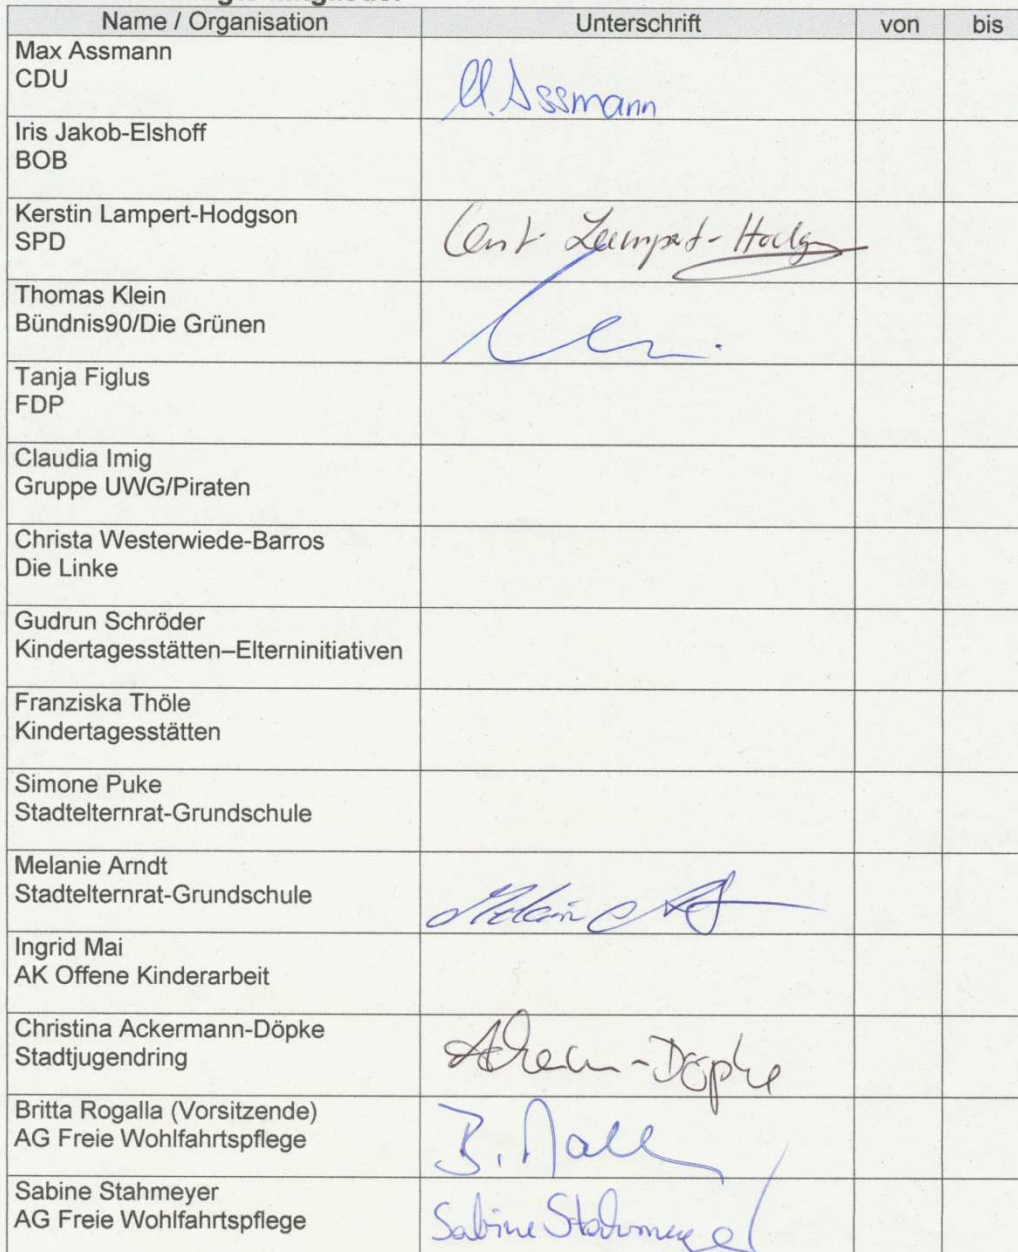 Name / Organisation Unterschrift von bis
Max Assmann
CDU
M. Assmann
Iris Jakob-Elshoff
BOB
Kerstin Lampert-Hodgson
SPD
Lampert-Hodgson
Thomas Klein
Bündnis90/Die Grünen
Tanja Figlus
FDP
Claudia Imig
Gruppe UWG/Piraten
Christa Westerwiede-Barros
Die Linke
Gudrun Schröder
Kindertagesstätten–Elterninitiativen
Franziska Thöle
Kindertagesstätten
Simone Puke
Stadtelternrat-Grundschule
Melanie Arndt
Stadtelternrat-Grundschule
Melanie
Ingrid Mai
AK Offene Kinderarbeit
Christina Ackermann-Döpke
Stadtjugendring
Ackermann-Döpke
Britta Rogalla (Vorsitzende)
AG Freie Wohlfahrtspflege
B.
Sabine Stahmeyer
AG Freie Wohlfahrtspflege
Sabine Stahmeyer